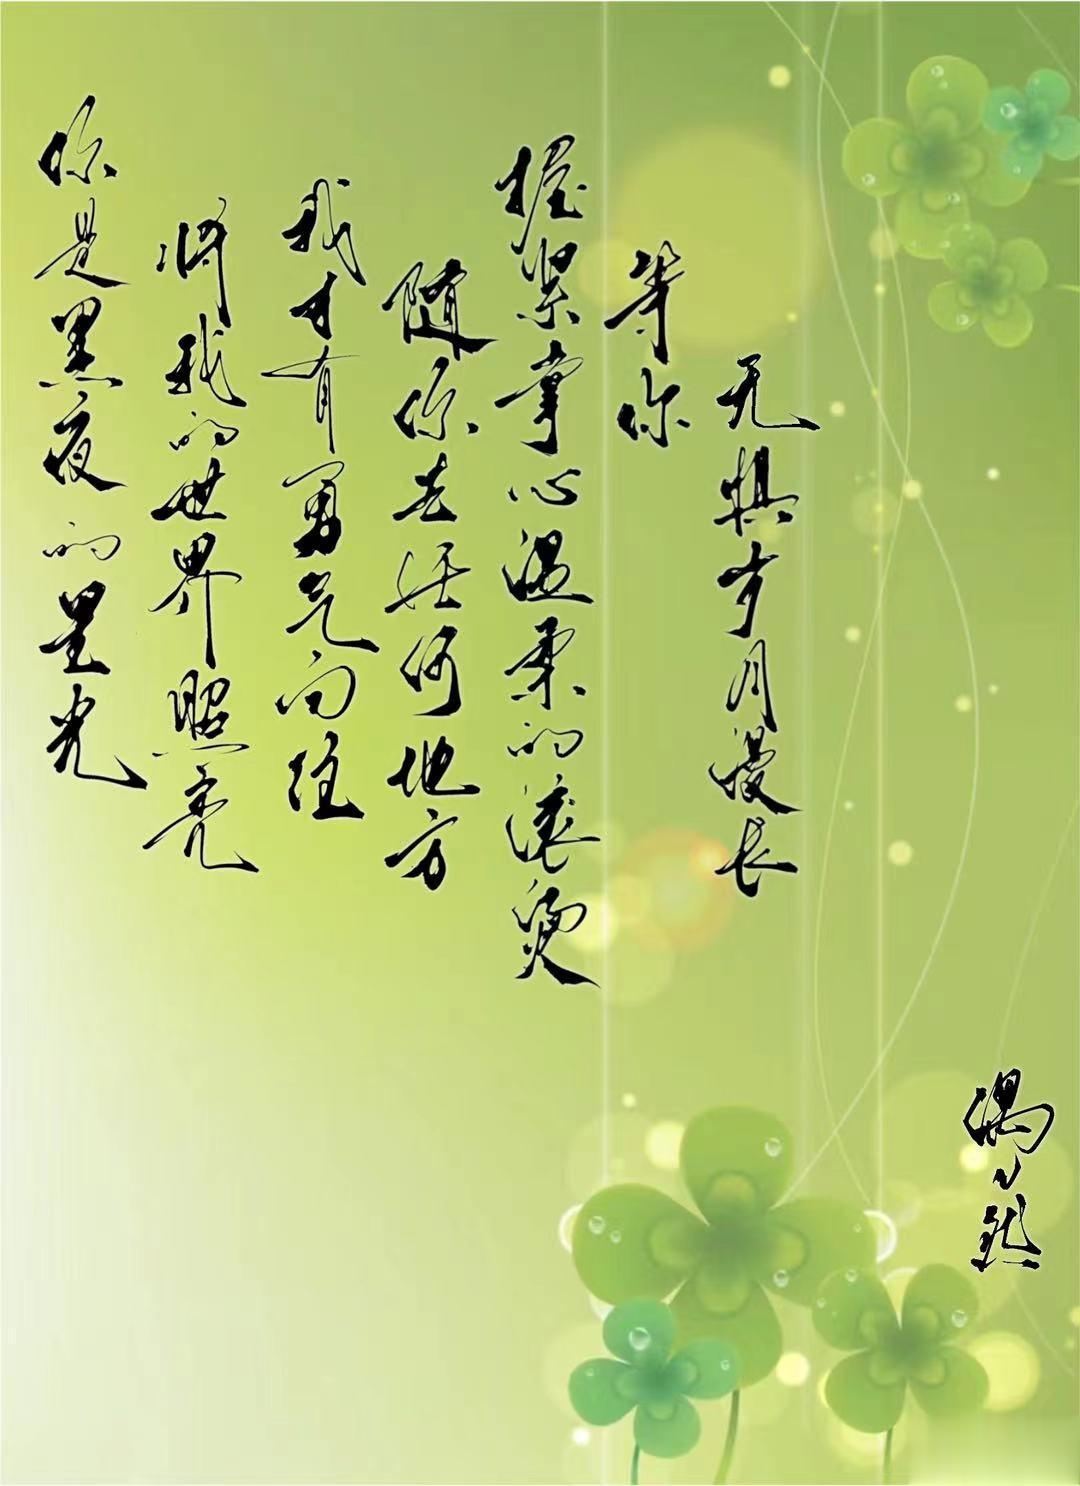 你是黑夜的星光
将我的世界照亮
我才有勇气向往
随你去任何地方
握紧掌心温柔的滚烫
等你
无惧岁月漫长